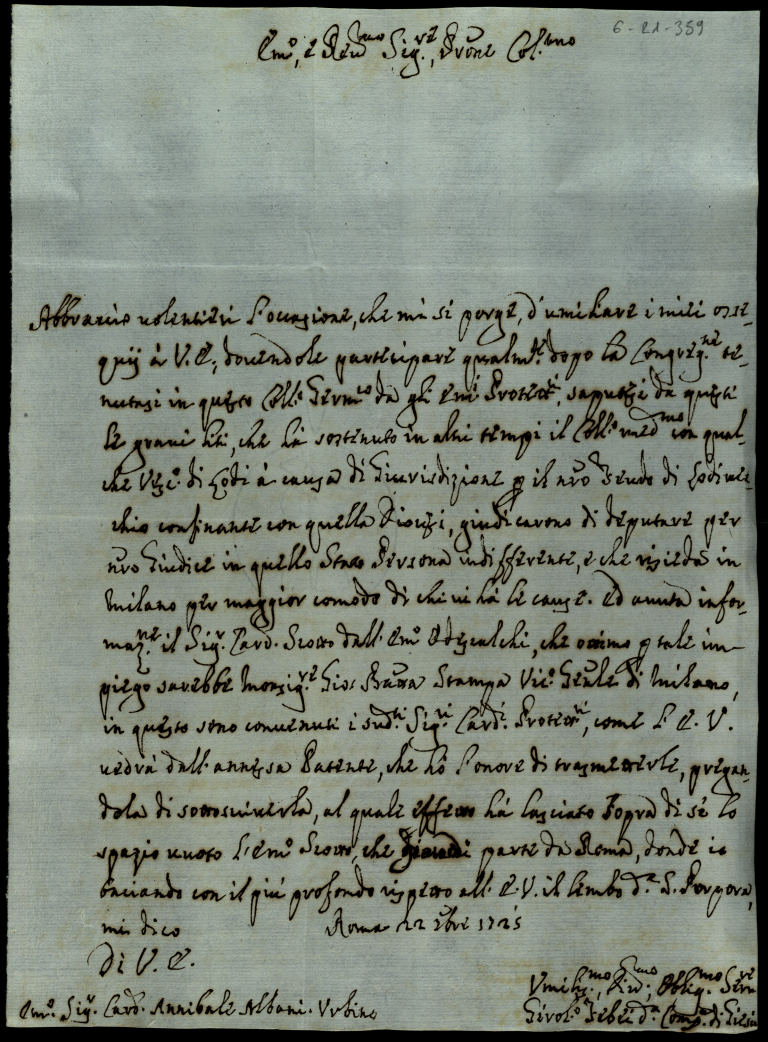 6-21-359
Em.º, e Rev.mo Sig.re, Prone Col.mo
Abbraccio volentieri l'occasione, che mi si porge, d'umiliare i miei osse-
quij à V. E., dovendole partecipare qualm.te dopo la Congreg.ne te-
nutasi in questo Coll.º Germ.co da gli Emi Protett.ri, saputesi da questi
le gravi liti, che hà sostenuto in altri tempi il Coll.º med.mo con qual-
che Vesc.º di Lodi à causa di Giurisdizione p il nro Feudo di Lodivec-
chio confinante con quella Diocesi, giudicarono di deputare per
nro Giudice in quello Stato Persona indifferente, e che risieda in
Milano per maggior comodo di chi vi hà le cause. Ed avuta infor-
maz.ne il Sig.r Card. Scotto dall'Em.º Odescalchi, che ottimo p tale im-
piego sarebbe Monsig.re Gios. Batta Stampa Vic.º Genle di Milano,
in questo sono convenuti i sud.ti Sig.ri Card.i Protett.ri, come l'E. V.
vedrà dall'annessa Patente, che hò l'onore di trasmetterle, pregan-
dola di sottoscriverla, al quale effetto hà lasciato sopra di sè lo
spazio vuoto l'Em.º Scotto, che parte da Roma, donde io
baciando con il più profondo rispetto all'E. V. il lembo d.a S. Porpora,
mi dico Roma 22 1725
Di V. E.
Umilis.mo, Div.mo, Oblig.mo Serv.re
Em.º Sig.r Card. Annibale Albani. Urbino
Girol.º Febei d.a Comp.a di Giesù